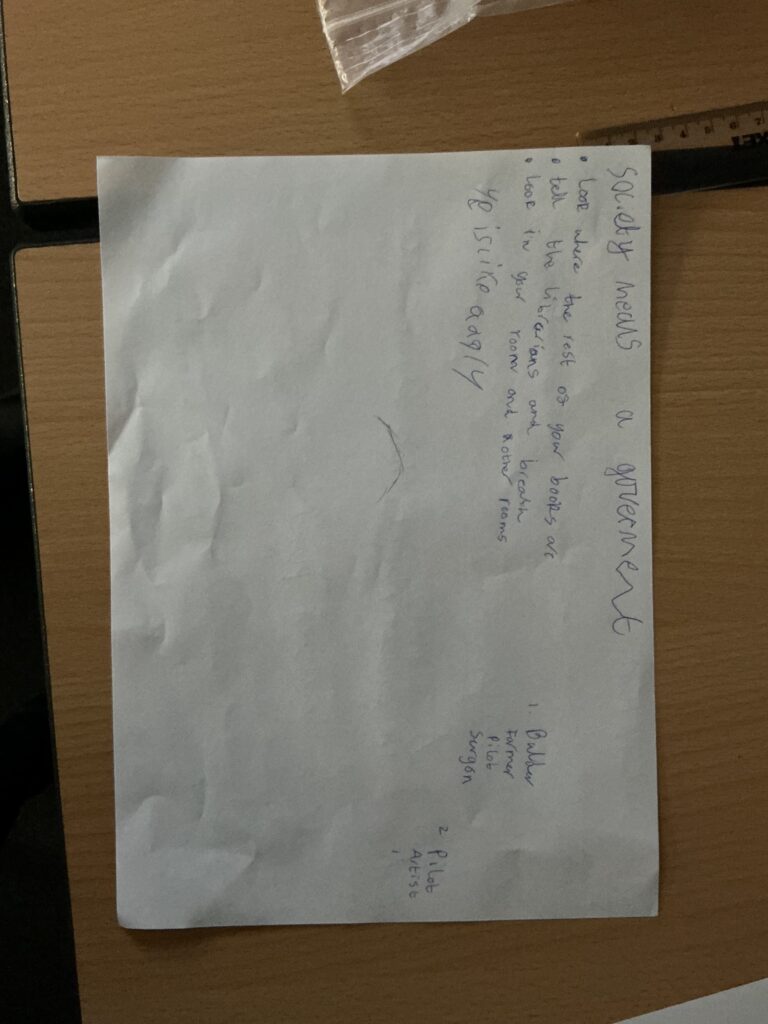 society means a goverment
• look where the rest of your books are
• tell the librarians and breath
• look in your room and other rooms
is like a
1. Builder
Farmer
Pilot
Surgon
2 Pilot
Artist